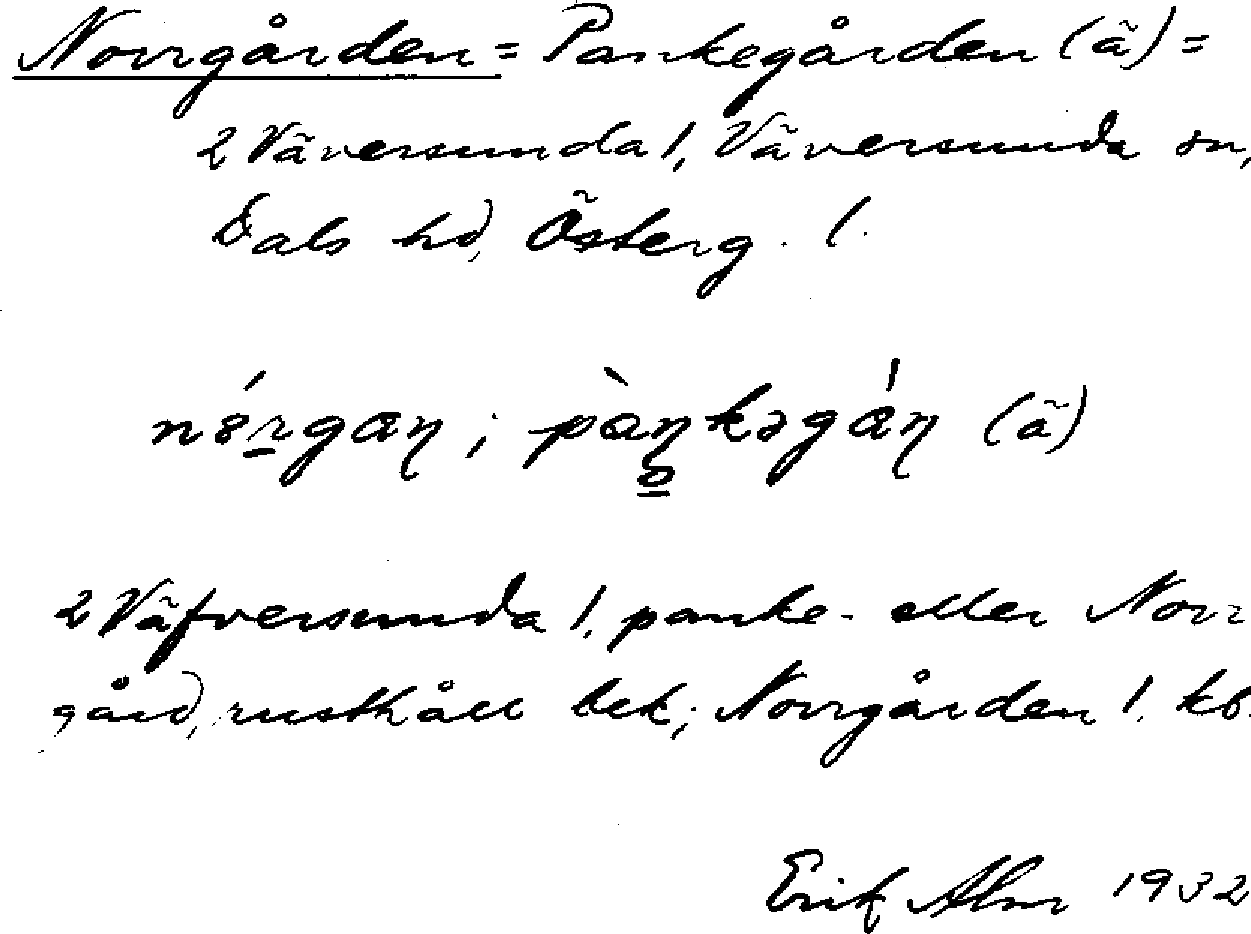 Norrgården = Pankegården (ä) =
2 Väversunda 1, Väversunda sn,
Dals hd, Österg. l.
nórgaɳ ; pàŋkəgáɳ (ä)
2 Väfversunda 1, panke- eller Norr
gård, rusthåll bek; Norrgården 1. kb.
Erik Alm 1932